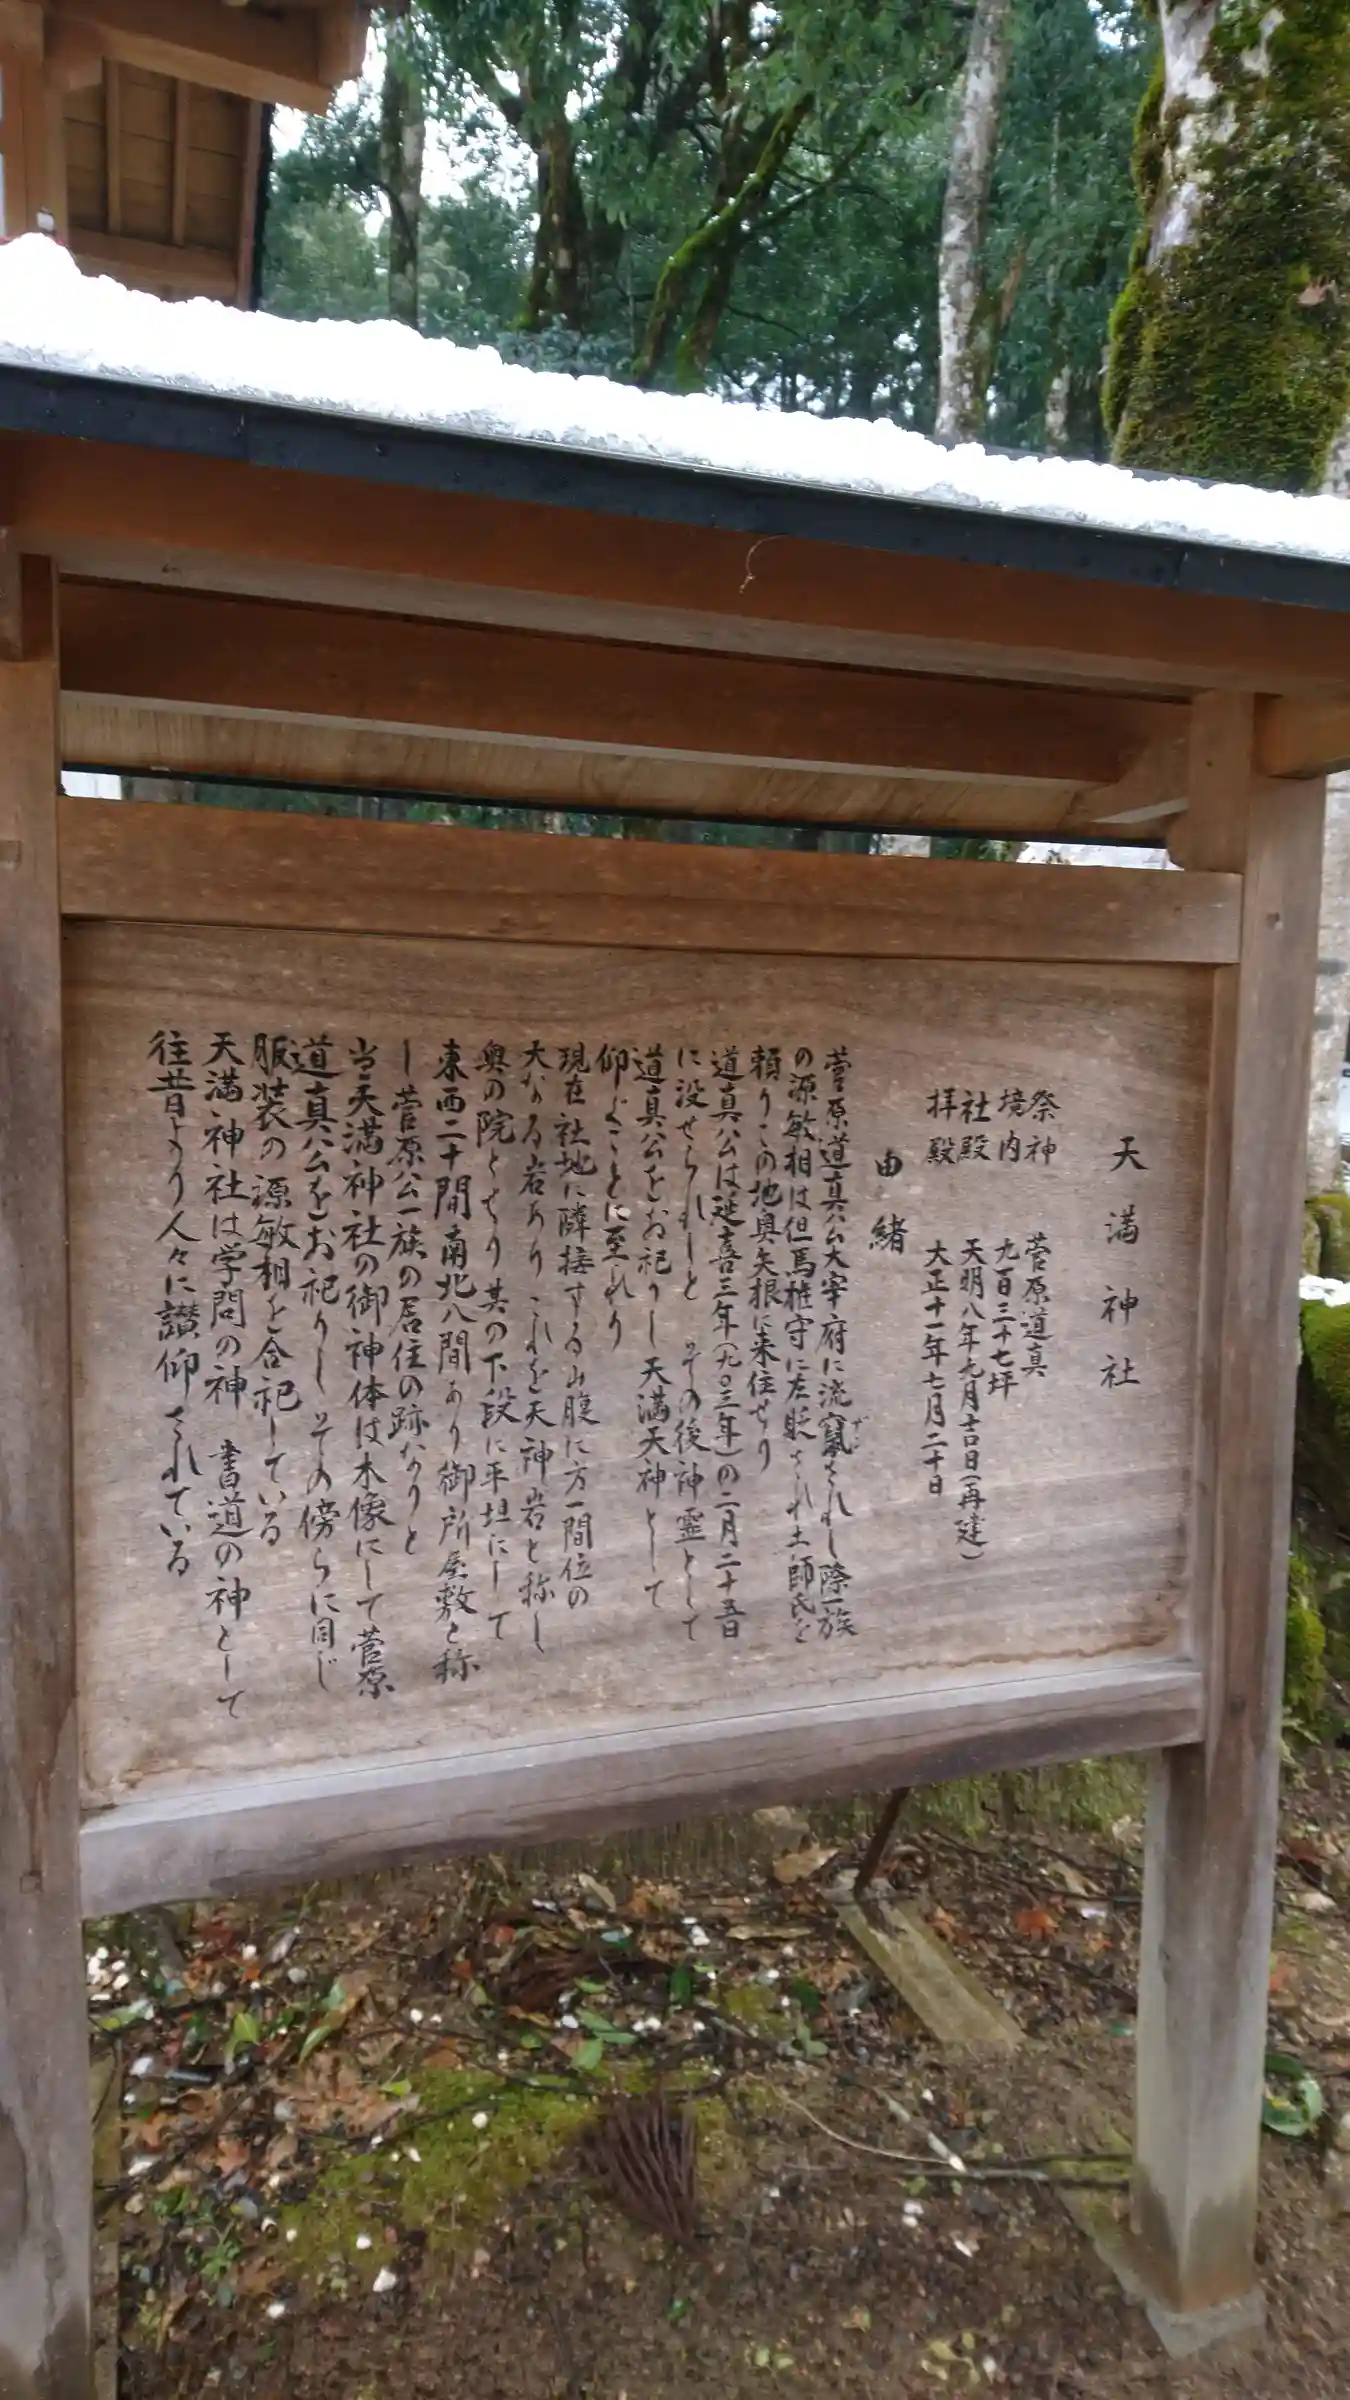 天満神社
祭神 菅原道真
境内 九百三十七坪
社殿 天明八年九月吉日(再建)
拝殿 大正十一年七月二十日
由緒
菅原道真公大宰府に流竄されし際一族
の源敏相は但馬権守に左貶され土師氏を
頼りこの地奥矢根に来住せり
道真公は延喜三年(九〇三年)の二月二十五日
に没せられしと その後神霊として
道真公をお祀りし天満天神として
仰ぐことに至れり
現在社地に隣接する山腹に方一間位の
大なる岩ありこれを天神岩と称し
奥の院とせり其の下段に平坦にして
東西二十間南北八間あり御所屋敷と称
し菅原公一族の居住の跡なりと
当天満神社の御神体は木像にして菅原
道真公をお祀りし その傍らに同じ
服装の源敏相を合祀している
天満神社は学問の神 書道の神として
往昔より人々に讃仰されている